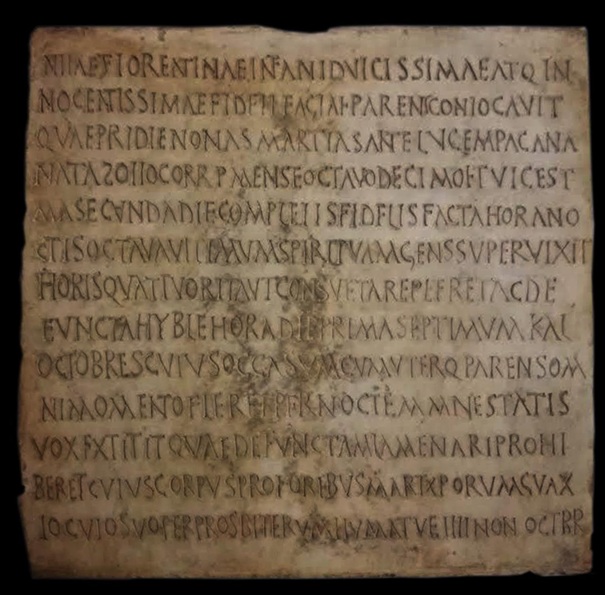 IVLIAE FLORENTINAE INFANTI DVLCISSIMAE ATQ IN
NOCENTISSIMAE FIDELI FACTAE PARENS CONLOCAVIT
QVAE PRIDIE NONAS MARTIAS ANTE LVCEM PAGANA
NATA ZOILO CORR P MENSE OCTAVO DECIMO ET VICEST
MA SECVNDA DIE COMPLETIS FIDELIS FACTA HORA NO
CTIS OCTAVA VLTIMVM SPIRITVM AGENS SVPERVIXIT
HORIS QVATTVOR ITA VT CONSVETA REPETERET AC DE
FVNCTA HYBLE HORA DIE PRIMA SEPTIMVM KAL
OCTOBRES CVIVS OCCASVM CVM VTERQ PARENS OM
NI MOMENTO FLERET PER NOCTEM STATIS
VOX EXTITIT QVAE DEFVNCTAM LAMENTARI PROHI
BERET CVIVS CORPVS PRO FORIBVS MARTXPORVM
LOCVLO SVO PER PROSBITERVM HVMATV E IIII NON OCTBR